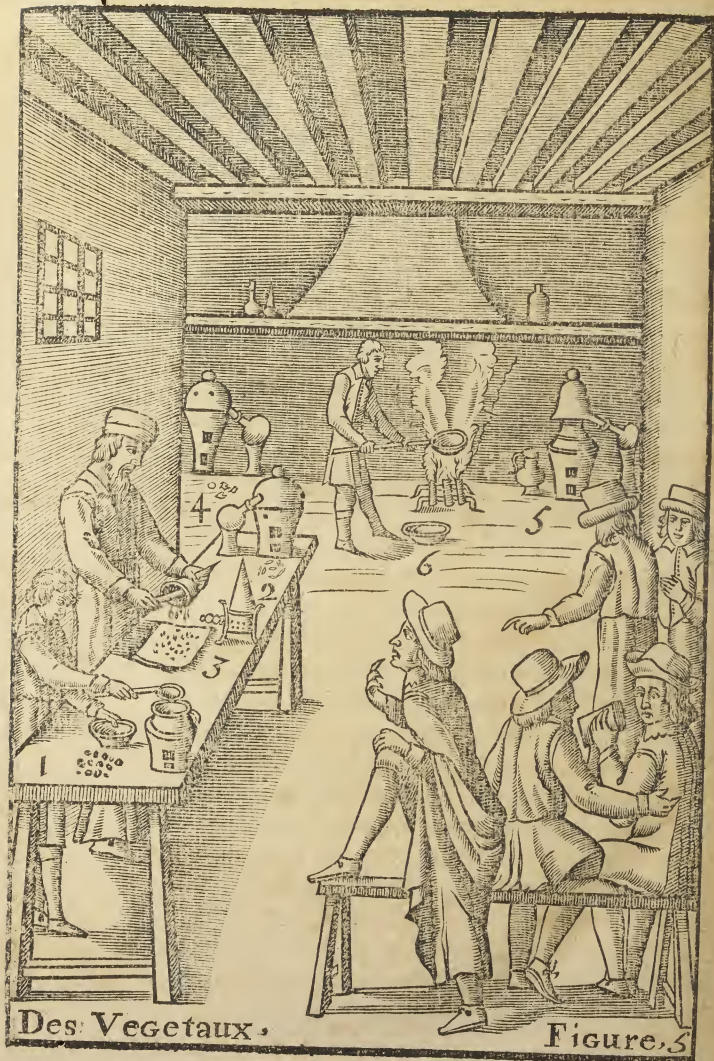 4
5
6
2
3
1
Des Vegetaux,
Figure, 5